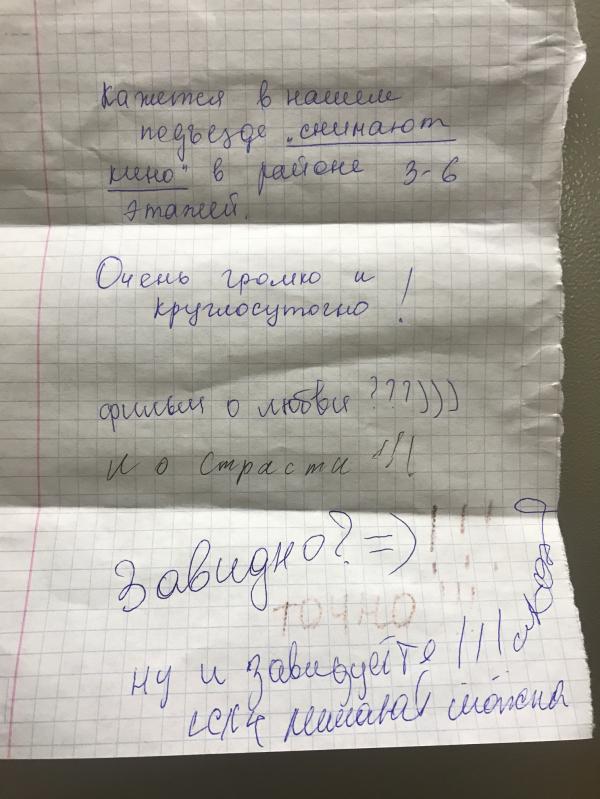 Кажется в нашем
подъезде „снимают
кино" в районе 3-6
этажей.
Очень громко и
круглосуточно !
фильм о любви ???)))
и о страсти !!!
Завидно? =) !!!
точно !!!
ну и завидуйте !!!
можна